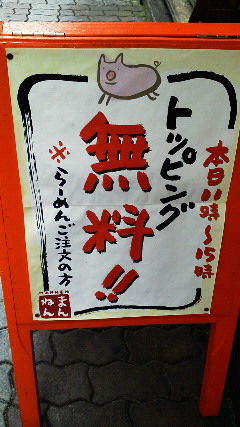 本日11時〜15時
トッピング
無料!!
※らーめんご注文の方
MANNEN
まんねん